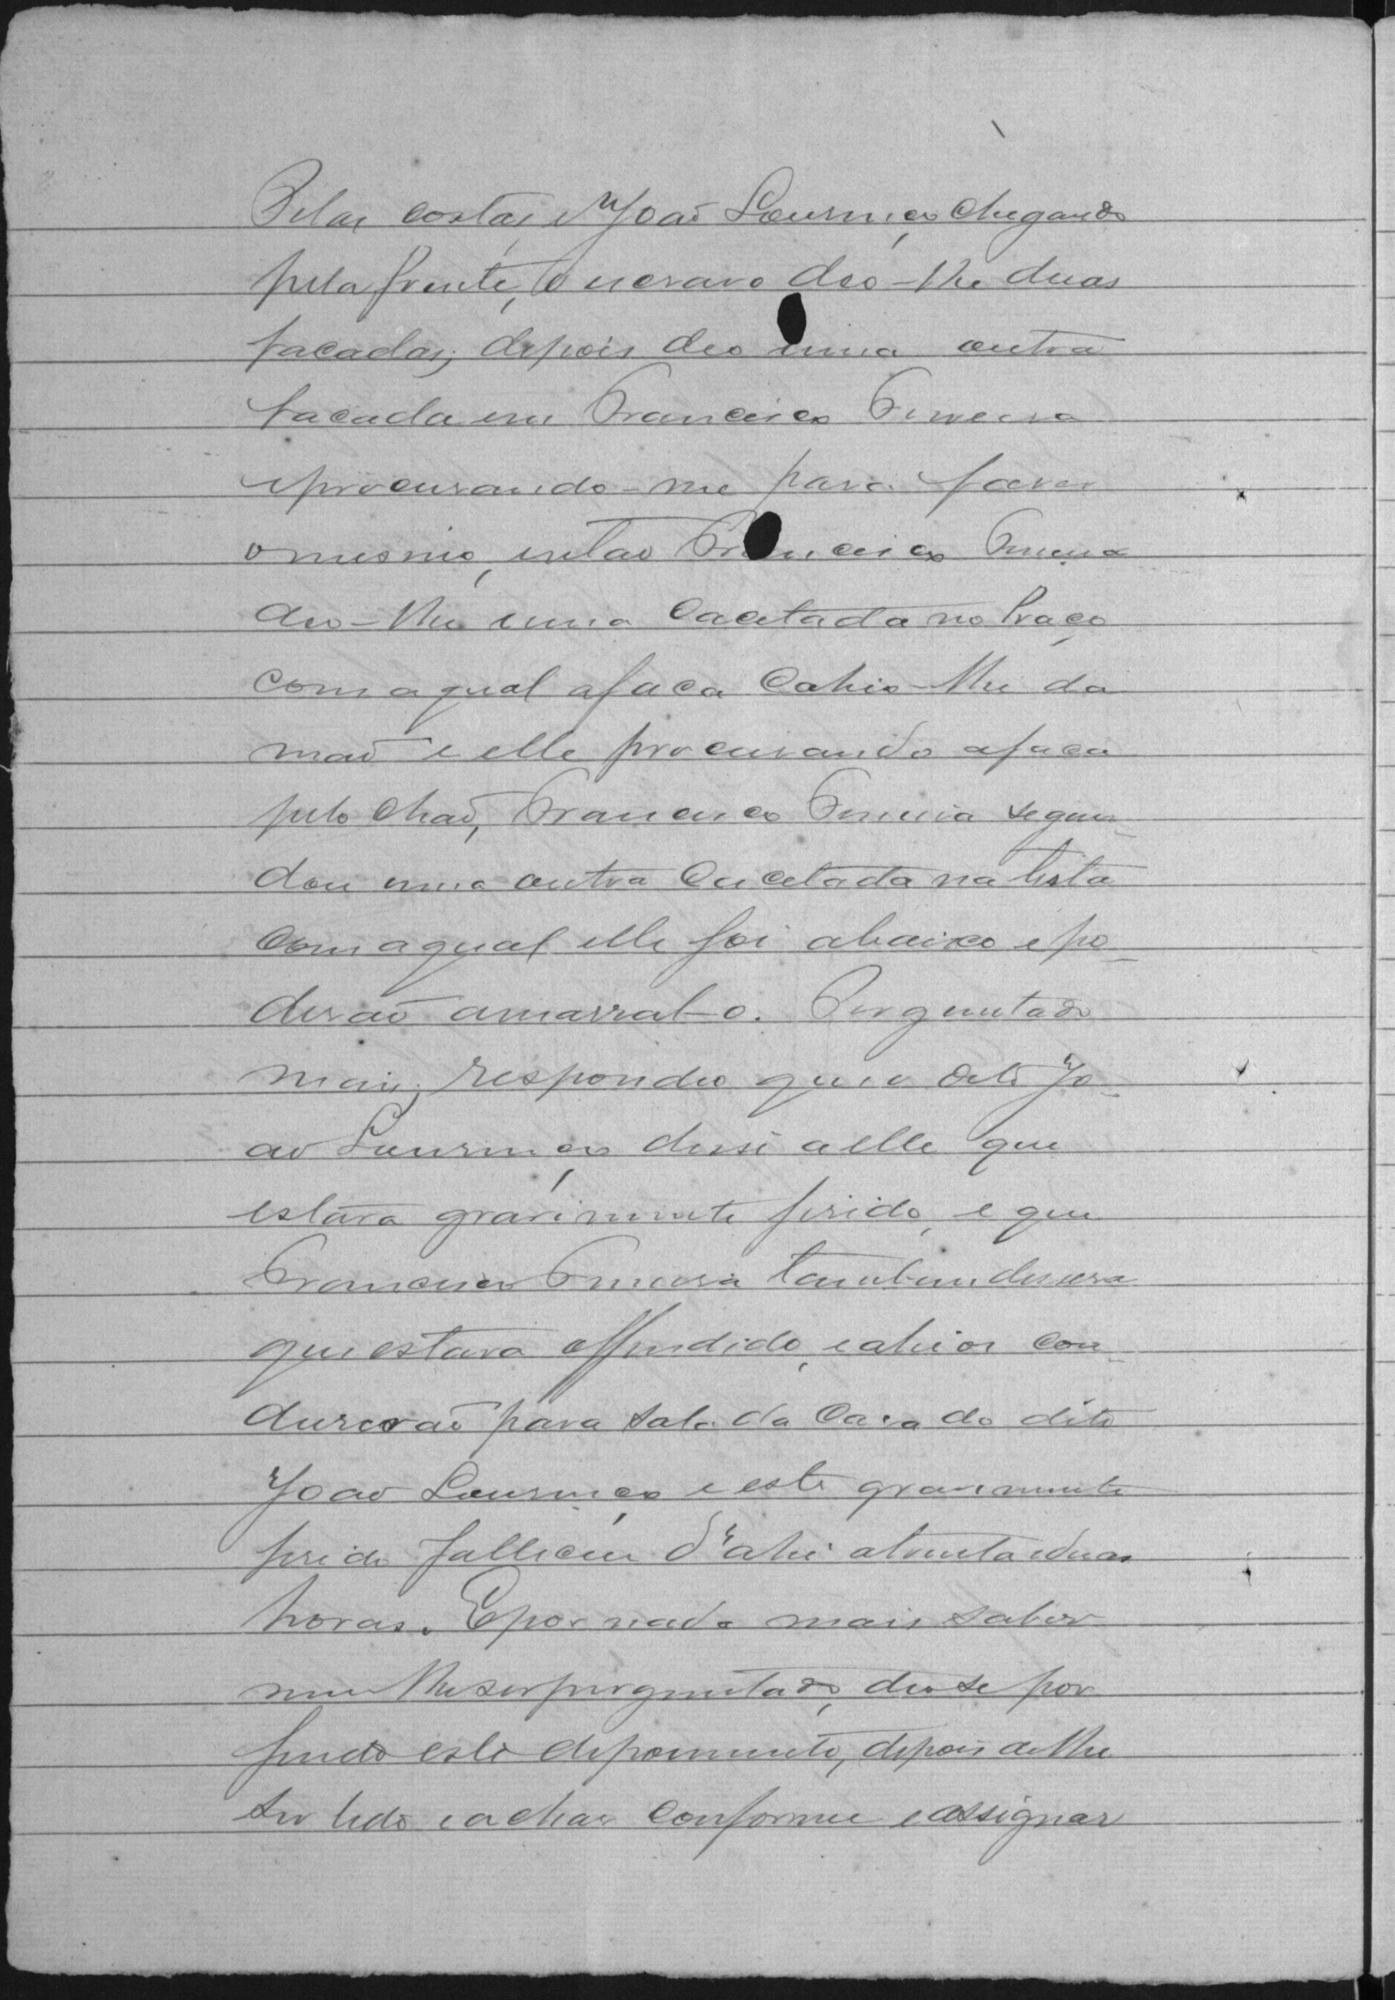 Pelas costas e João Lourenço chegando
pela frente, o escravo deo-lhe duas
facadas, depois deo uma outra
facada em Francisco Pereira
e procurando-me para fazer
o mesmo, então Francisco Pereira
deo-lhe uma cacetada no braço
com a qual a faca cahio-lhe da
mão e elle procurando a faca
pelo chão, Francisco Pereira segun-
dou uma outra cacetada na testa
com a qual elle foi abaixo e po-
derão amarral-o. Perguntado
mais, respondeo que o dito Jo-
ão Lourenço disse a elle que
estava gravimente ferido, e que
Francisco Pereira tambem dissera
que estava offendido, e ahi os con-
duzirão para sala da casa do dito
João Lourenço e este gravimente
ferido falleceu d'ahi a trinta e duas
horas. E por nada mais saber
nem lhe ser perguntado, deo-se por
findo este depoimento, depois de lhe
ser lido e achar conforme e assignar